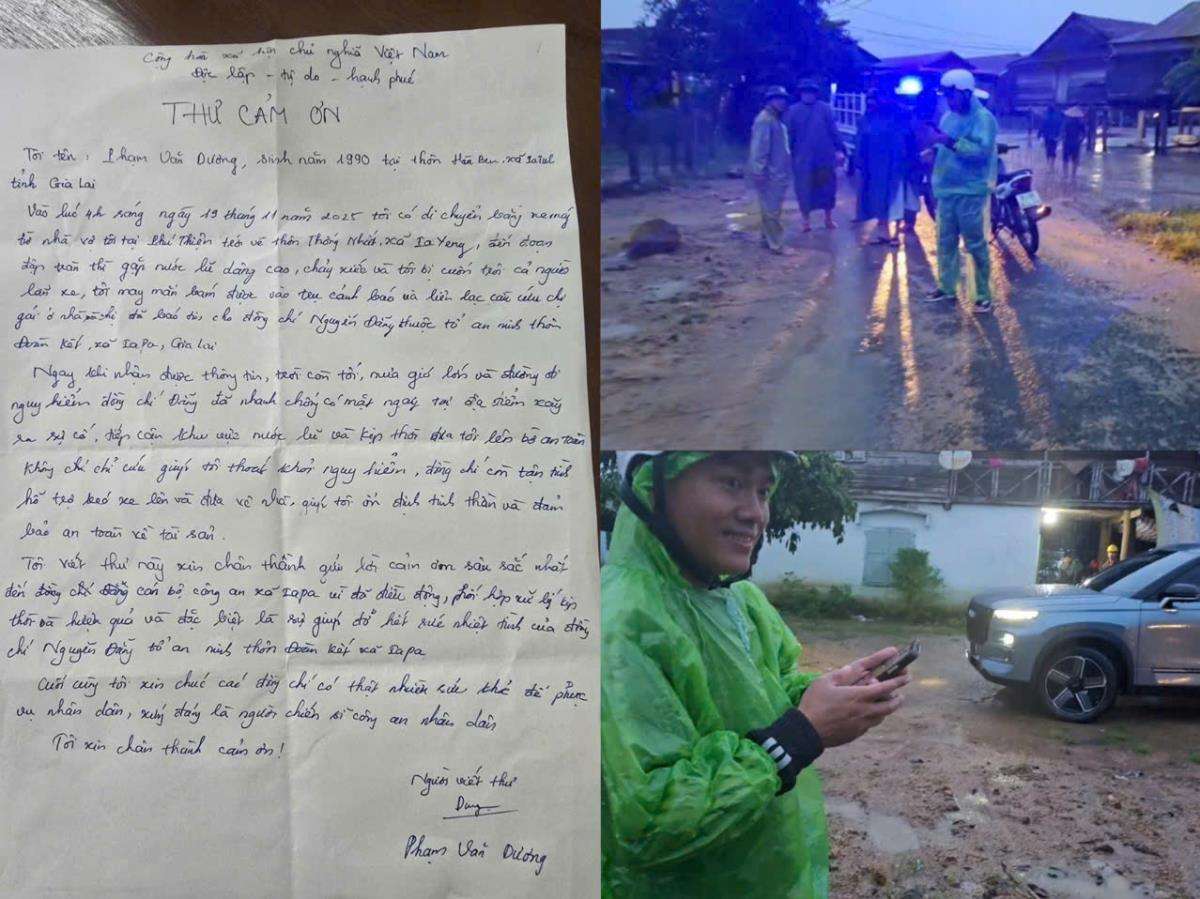 Cộng hòa xã hội chủ nghĩa Việt Nam
Độc lập - tự do - hạnh phúc
THƯ CẢM ƠN
Tôi tên: Phạm Văn Dương, sinh năm 1990 tại thôn xã IaTul
tỉnh Gia Lai
Vào lúc 4h sáng ngày 19 tháng 11 năm 2025 tôi có di chuyển bằng xe máy
từ nhà vợ tôi tại Phú Thiện về thôn Thống Nhất, xã Ia Yeng, đến đoạn
đập tràn thì gặp nước lũ dâng cao, chảy xiết và tôi bị cuốn trôi cả người
lẫn xe, tôi may mắn bám được vào trụ cảnh báo và liên lạc cầu cứu chị
gái ở nhà chị đã báo cho đồng chí Nguyễn Đăng thuộc tổ an ninh thôn
Đoàn Kết, xã IaPa, Gia Lai
Ngay khi nhận được thông tin, trời còn tối, mưa gió lớn và đường đi
nguy hiểm đồng chí Đăng đã nhanh chóng có mặt ngay tại địa điểm xảy
ra sự cố, tiếp cận khu vực nước lũ và kịp thời đưa tôi lên bờ an toàn
Không chỉ chỉ cứu giúp tôi thoát khỏi nguy hiểm, đồng chí còn tận tình
hỗ trợ kéo xe lên và đưa về nhà, giúp tôi ổn định tinh thần và đảm
bảo an toàn về tài sản.
Tôi viết thư này xin chân thành gửi lời cảm ơn sâu sắc nhất
đến cán bộ công an xã IaPa vì đã điều động, phối hợp xử lý kịp
thời và hiệu quả và đặc biệt là sự giúp đỡ hết sức nhiệt tình của đồng
chí Nguyễn Đăng tổ an ninh thôn Đoàn Kết xã IaPa
Cuối cùng tôi xin chúc các đồng chí có thật nhiều sức khỏe để phục
vụ nhân dân, xứng đáng là người chiến sĩ công an nhân dân
Tôi xin chân thành cảm ơn!
Người viết thư
Dương
Phạm Văn Dương